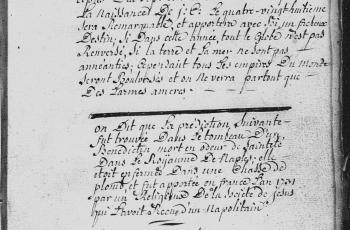 La Naissance De J: C: Le quatre-vingt huitieme
sera Remarquable, et apportera avec lui un facheux
Destin; si Dans cette année, tout le Globe n'est pas
Renversé, si la terre et la mer ne sont pas
anneanties; Cependant tous les empires Du Monde
seront Boulversés et on ne verra partout que
Des larmes ameres
on Dit que la prediction suivante
fut trouvée Dans le tombeau D'un
Benedictin mort en odeur de sainteté
Dans le Royaume De Naples; elle
etoit enfermée Dans une Chasse De
plomb, et fut apportée en france L'an 1731
par un Religieux De la societé de jesus
qui L'avoit Recüe d'un Napolitain